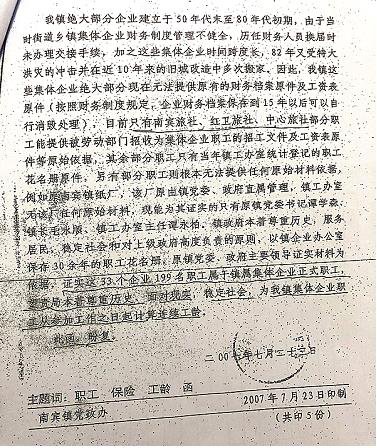 我镇绝大部分企业建立于50年代末至80年代初期，由于当
时街道乡镇集体企业财务制度管理不健全，历任财务人员换届时
未办理交接手续，加之这些集体企业时间跨度长，82年又受特大
洪灾的冲击并在近10年来的旧城改造中多次搬家，因此，我镇这
些集体企业绝大部分现在无法提供原有的财务档案原件及工资表
原件（按照财务制度规定，企业财务档案保存到15年以后可以自
行消毁处理），目前只有南宾旅社、红卫旅社、中心旅社部分职
工能提供被劳动部门招收为集体企业职工的招工文件及工资表原
件等原始依据，其余部分职工只有当年镇工办室统计登记的职工
花名册原件，另有部分职工则根本无法提供任何原始材料依据，
例如原南宾镇纸厂，该厂原由镇党委、政府直属管理，镇工办室
无该厂任何原始材料，现能为其证实的只有原镇党委书记谭学森、
镇长毛永顺、镇工办室主任谭永柏。镇政府本着尊重历史，服务
居民，稳定社会和对上级政府高度负责的原则，以镇企业办公室
保存30余年的职工花名册、原镇党委、政府主要领导证实材料为
依据，证实这33个企业199名职工属于镇属集体企业正式职工，
本着尊重历史、面对现实、稳定社会，为我镇集体企业职
工从参加工作之日起计算连续工龄。
此函，盼复。
二00七年七月二十三日
主题词：职工 保险 工龄 函
南宾镇党政办 2007年7月23日印制
（共印5份）